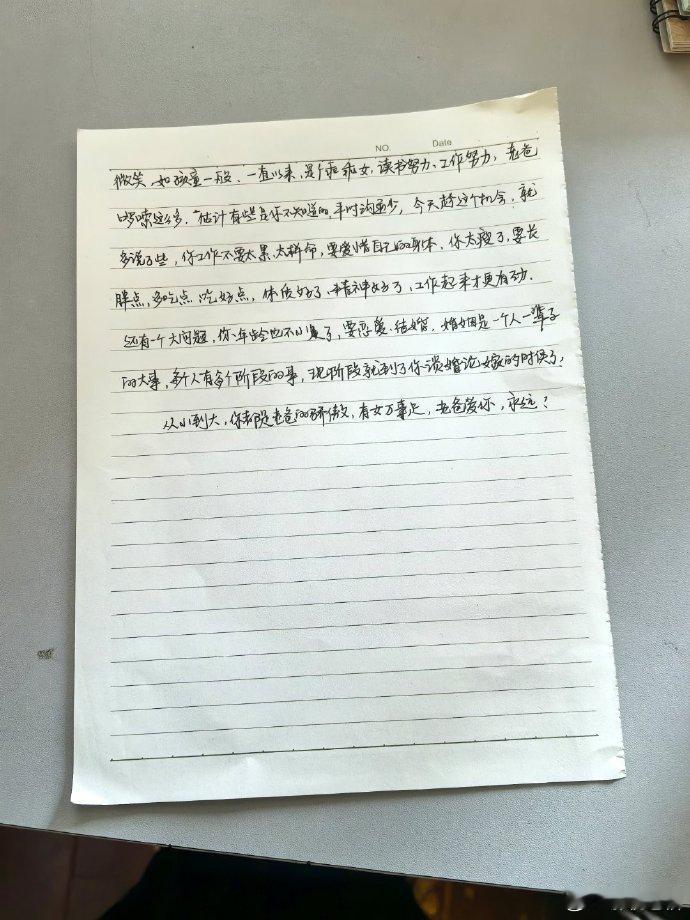 NO. Date
微笑,如孩童一般,一直以来,是个乖乖女,读书努力、工作努力,老爸
啰嗦这么多,估计有些是你不知道的,平时沟通少,今天趁这个机会,就
多说了些,你工作不要太累、太拼命,要爱惜自己的身体,你太瘦了,要长
胖点,多吃点,吃好点,体质好了,精神好了,工作起来才更有劲.
还有一个大问题,你年龄也不小了,要恋爱、结婚,婚姻是一个人一辈子
的大事,每个人有每个阶段的事,现阶段就到了你谈婚论嫁的时候了!
从小到大,你都是老爸的骄傲,有女万事足,老爸爱你,永远!